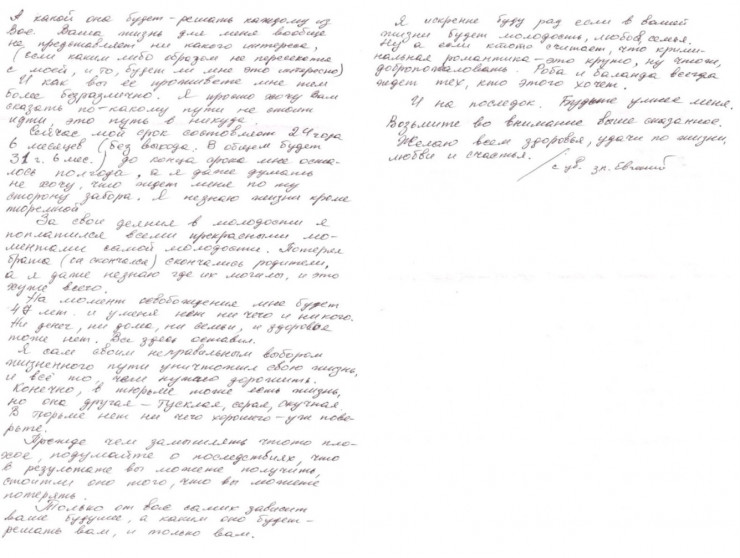 А какой она будет - решать каждому из
Вас. Ваша жизнь для меня вообще
не представляет ни какого интереса,
(если каким либо образом не пересечется
с моей, и то, будет ли мне это интересно)
И как вы её проживете мне тем
более безразлично. Я просто хочу Вам
сказать по-какому пути не стоит
идти, это путь в никуда.
Сейчас мой срок составляет 24 года
6 месяцев (без выхода. В общем будет
31 г. 6 мес.) до конца срока мне оста-
лось полгода, а я даже думать
не хочу, что ждет меня по ту
сторону забора. Я незнаю жизни кроме
тюремной.
За свои деяния в молодости я
поплатился всеми прекрасными мо-
ментами самой молодости. Потерял
брата (он скончался) скончались родители,
а я даже незнаю где их могилы, и это
хуже всего.
На момент освобождения мне будет
47 лет. и уменя нет ни чего и никого.
Ни денег, ни дома, ни семьи, и здоровье
тоже нет. Всё здесь оставил.
Я сам своим неправильным выбором
жизненного пути уничтожил свою жизнь,
и всё то, чем нужно дорожить.
Конечно, в тюрьме тоже есть жизнь,
но она другая - Тусклая, серая, скучная
В тюрьме нет ни чего хорошего - уж пове-
рьте.
Прежде чем замышлять чтото пло-
хое, подумайте о последствиях, что
в результате вы можете получить,
стоит ли оно того, что вы можете
потерять.
Только от вас самих зависит
ваше будущее, а каким оно будет -
решать вам, и только вам.
Я искренне буду рад если в вашей
жизни будет молодость, любовь, семья.
Ну а если ктото считает, что крими-
нальная романтика - это круто, ну чтож,
добропожаловать. Роба и баланда всегда
ждет тех, кто этого хочет.
И на последок. Будьте умнее меня.
Возьмите во внимание выше сказанное.
Желаю всем здоровья, удачи по жизни,
любви и счастья.
с ув. зп. Евгений